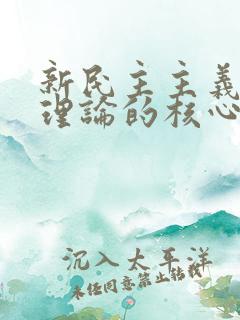 新民主主義
理論的核心
沉入太平洋
未任同意禁止轉載